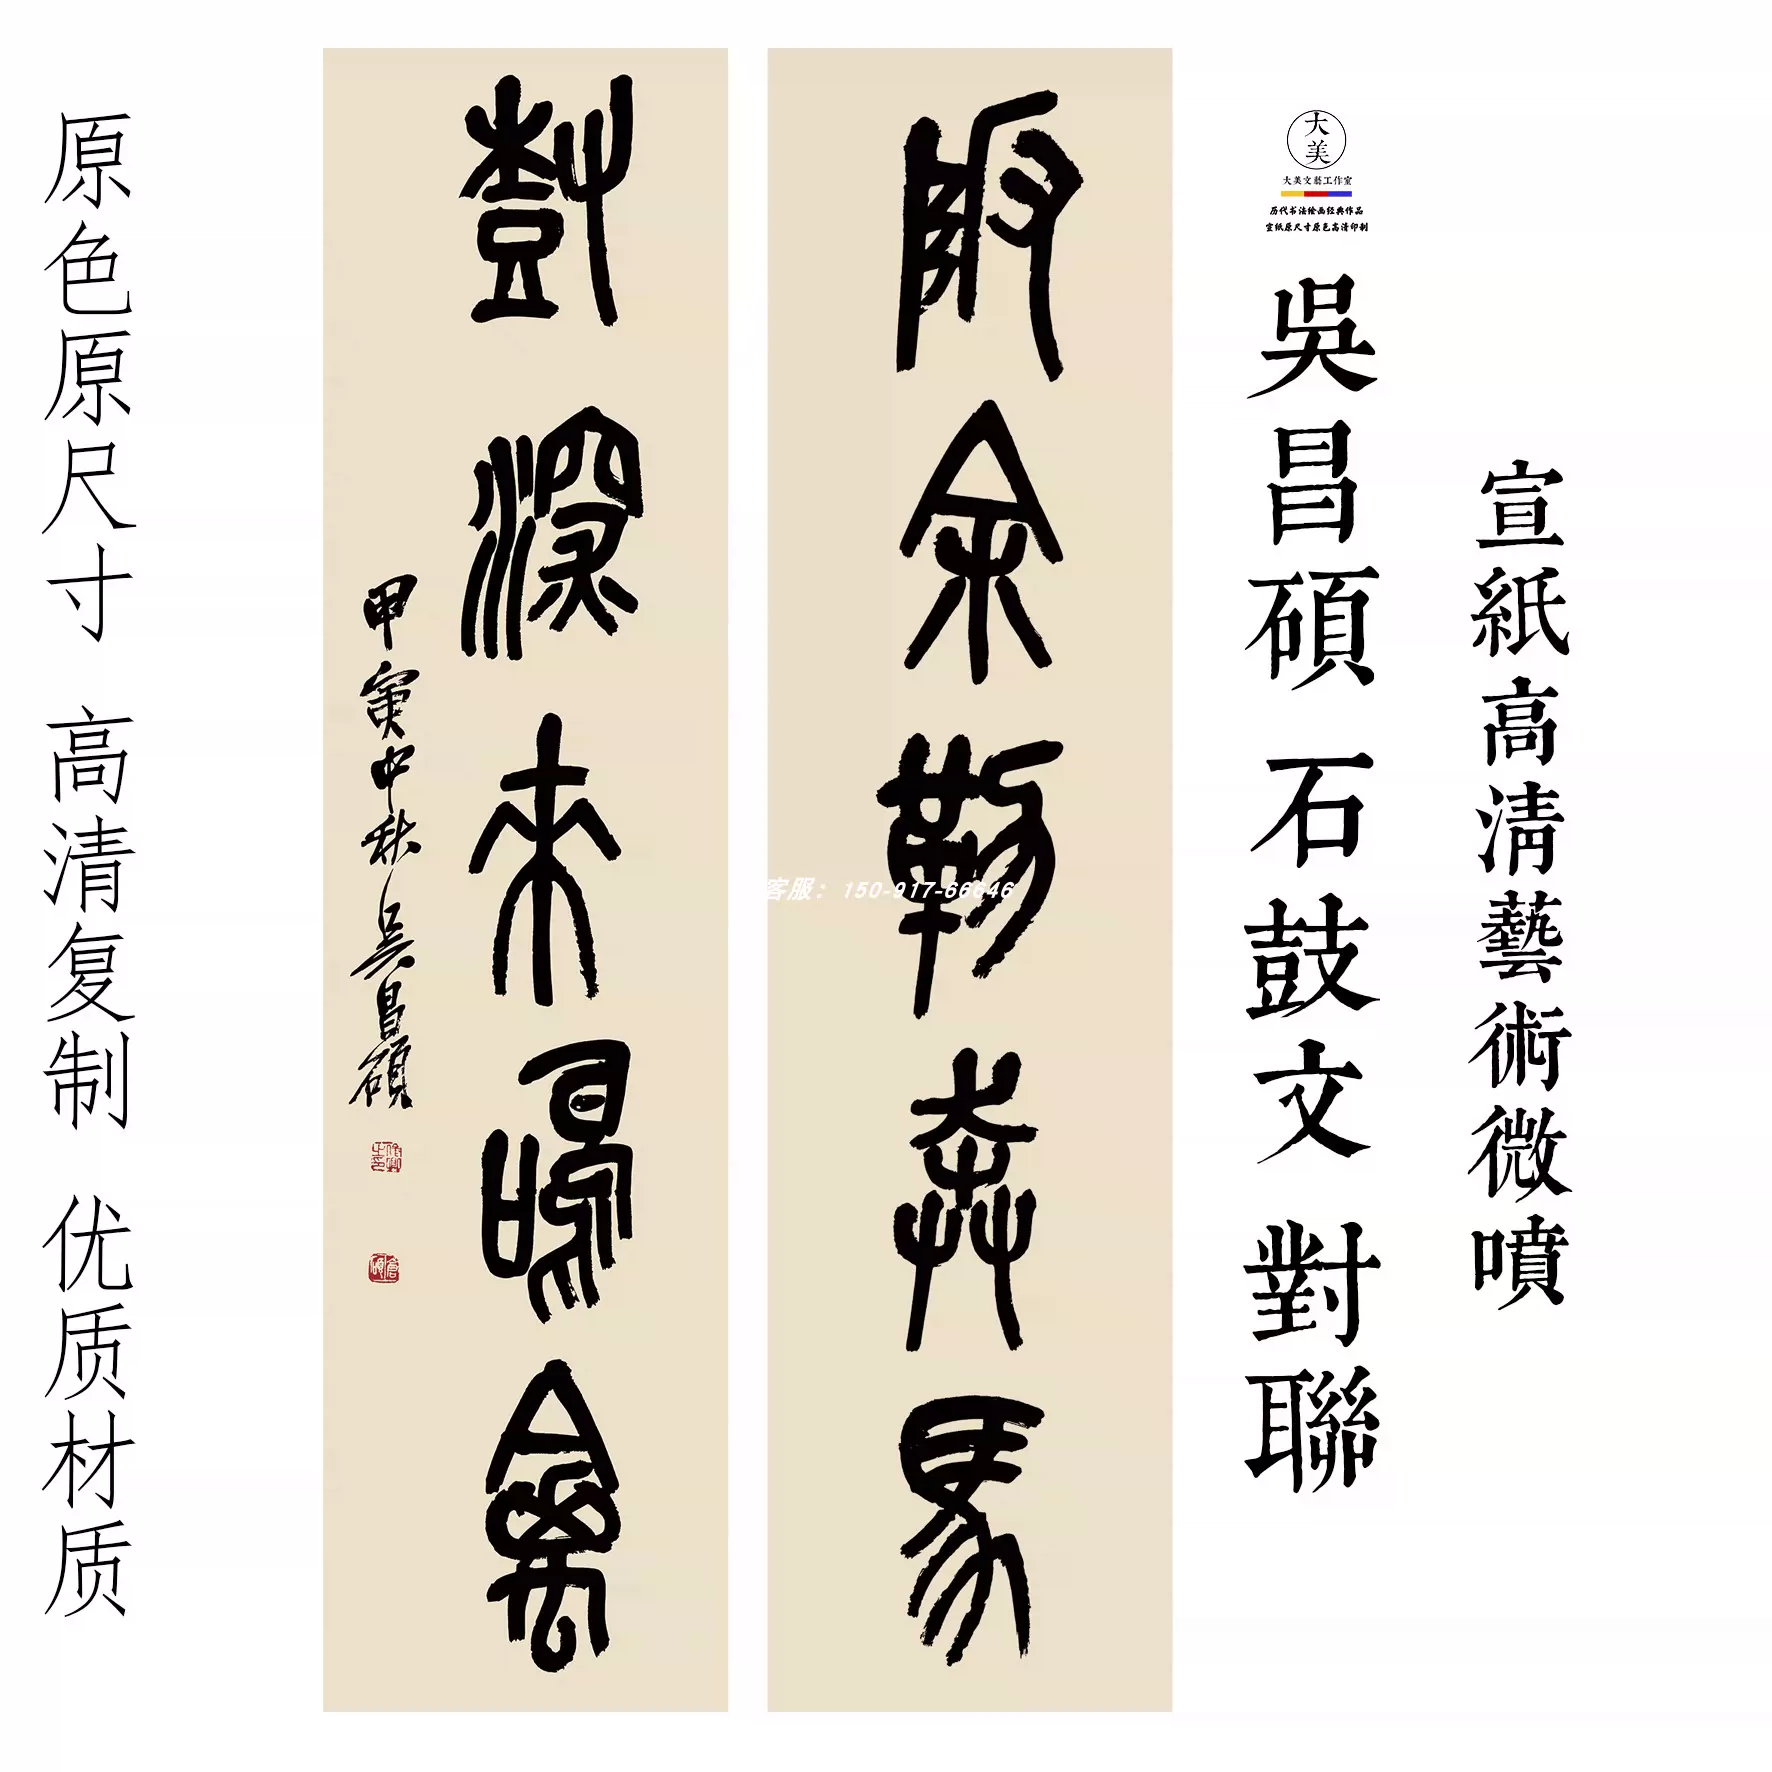 大美
大美文藝工作室
历代书法绘画经典作品
宣纸原尺寸原色高清印制
宣紙高清藝術微噴
吳昌碩 石鼓文 對聯
余勒奔馬
尌深來禽
甲寅中秋吳昌碩
客服：150-917-66646
原色原尺寸 高清复制 优质材质